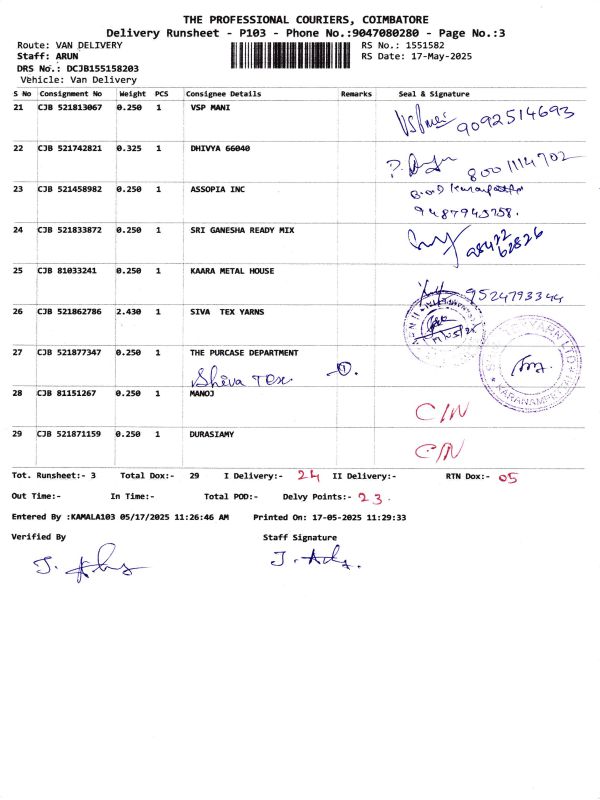 THE PROFESSIONAL COURIERS, COIMBATORE
Delivery Runsheet - P103 - Phone No.:9047080280 - Page No.:3
Route: VAN DELIVERY RS No.: 1551582
Staff: ARUN RS Date: 17-May-2025
DRS No.: DCJB155158203
Vehicle: Van Delivery
S No Consignment No Weight PCS Consignee Details Remarks Seal & Signature
21 CJB 521813067 0.250 1 VSP MANI
9092514693
22 CJB 521742821 0.325 1 DHIVYA 66040
8001114702
23 CJB 521458982 0.250 1 ASSOPIA INC
9487943758.
24 CJB 521833872 0.250 1 SRI GANESHA READY MIX
98422 62826
25 CJB 81033241 0.250 1 KAARA METAL HOUSE
9524793344
26 CJB 521862786 2.430 1 SIVA TEX YARNS
27 CJB 521877347 0.250 1 THE PURCASE DEPARTMENT
Shiva Tex ①.
28 CJB 81151267 0.250 1 MANOJ
C/N
29 CJB 521871159 0.250 1 DURASIAMY
C/N
Tot. Runsheet:- 3 Total Dox:- 29 I Delivery:- 24 II Delivery:- RTN Dox:- 05
Out Time:- In Time:- Total POD:- Delvy Points:- 23.
Entered By :KAMALA103 05/17/2025 11:26:46 AM Printed On: 17-05-2025 11:29:33
Verified By Staff Signature